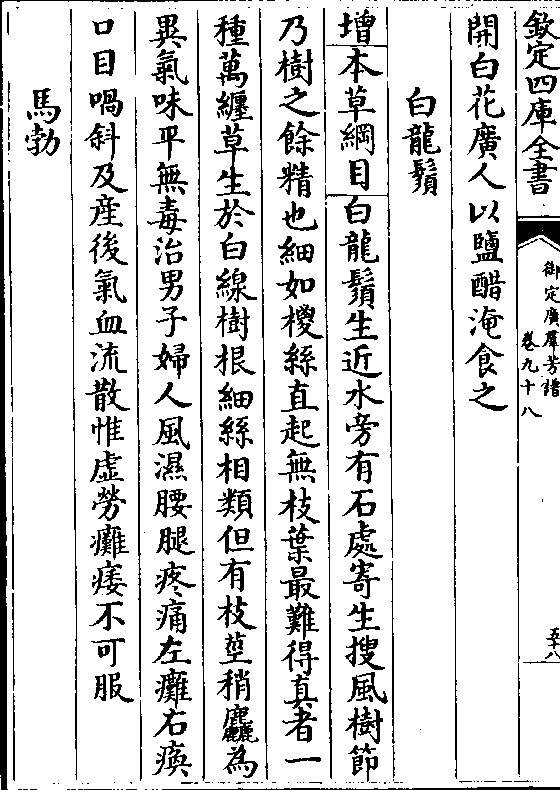 欽定四庫全書
御定廣羣芳譜
卷九十八
五十八
開白花廣人以鹽醋淹食之
白龍鬚
增本草綱目白龍鬚生近水旁有石處寄生搜風樹節
乃樹之餘精也細如㯶絲直起無枝葉最難得真者一
種萬纏草生於白線樹根細絲相類但有枝莖稍麤為
異氣味平無毒治男子婦人風濕腰腿疼痛左癱右瘓
口目喎斜及産後氣血流散惟虛勞癱痿不可服
馬勃